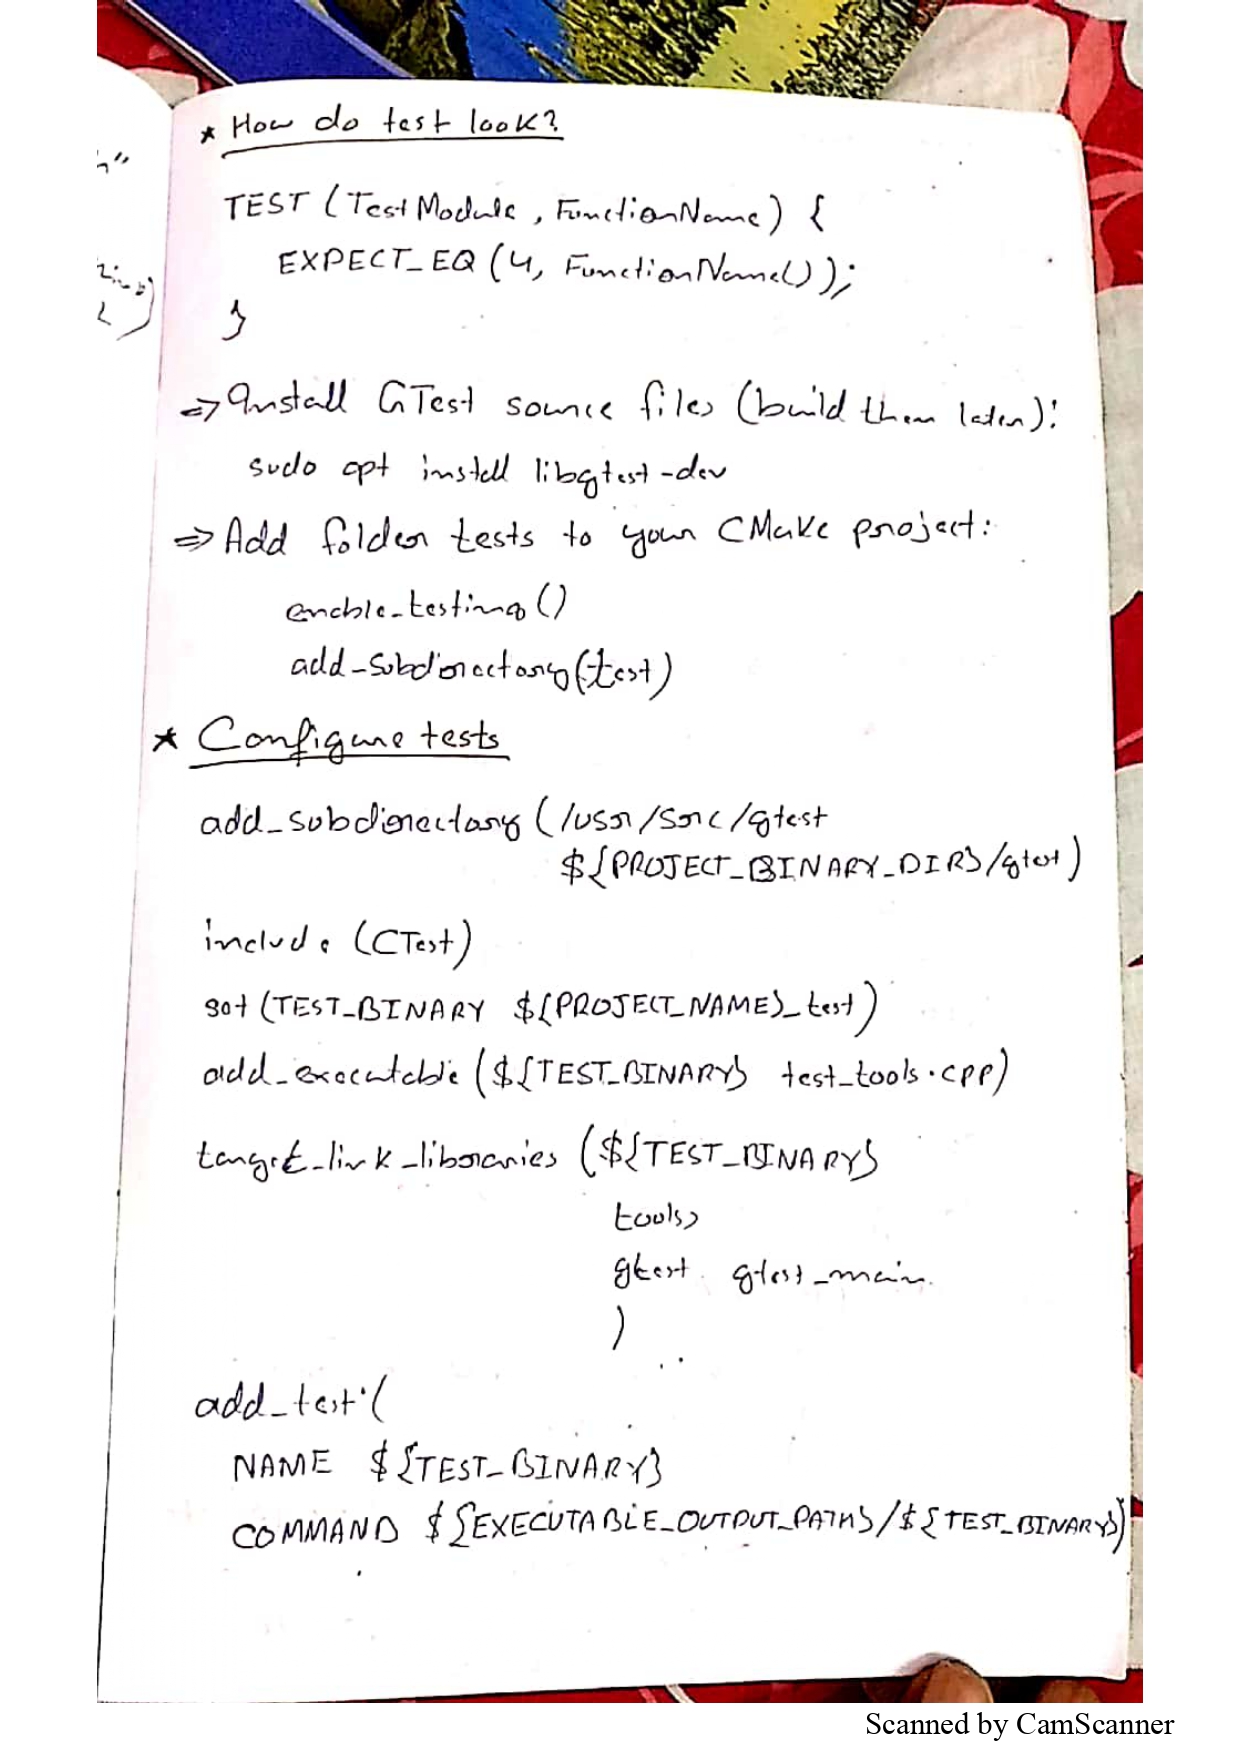 * How do test look?
TEST (TestModule, FunctionName) {
EXPECT_EQ (4, FunctionName());
}
=> Install GTest source files (build them later):
sudo apt install libgtest-dev
=> Add folder tests to your CMake project:
enable_testing ()
add_subdirectory (test)
* Configure tests
add_subdirectory (/usr/src/gtest
${PROJECT_BINARY_DIR}/gtest)
include (CTest)
set (TEST_BINARY ${PROJECT_NAME}_test)
add_executable (${TEST_BINARY} test_tools.cpp)
target_link_libraries (${TEST_BINARY}
tools
gtest gtest_main
)
add_test (
NAME ${TEST_BINARY}
COMMAND ${EXECUTABLE_OUTPUT_PATH}/${TEST_BINARY})
Scanned by CamScanner